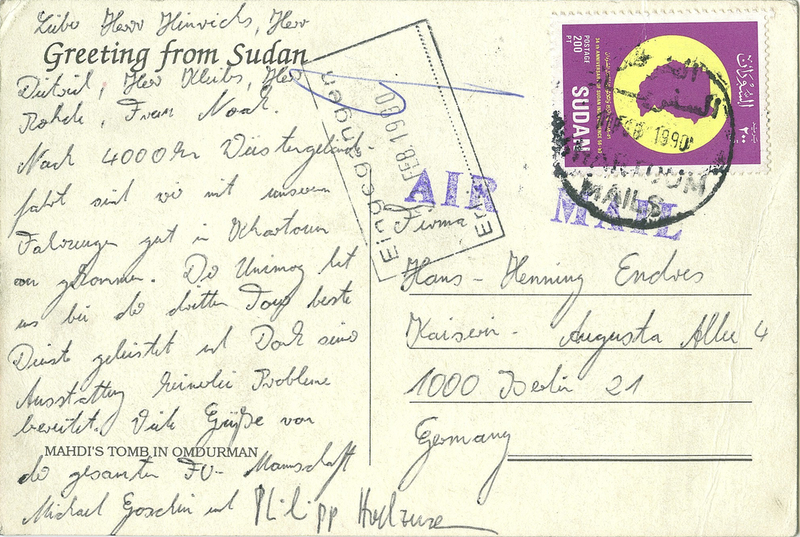 Liebe Herr Hinrichs, Herr
Greeting from Sudan
Dietrich, Herr Mertes, Herr
Rohde, Frau Noak.
Nach 4000 km Wüstengelände
fahrt sind wir mit unseren
Fahrzeugen gut in Khartoum
an gekommen. Der Unimog hat
uns bei der dritten Tour beste
Dienste geleistet und Dank seiner
Ausstattung keinerlei Probleme
bereitet. Viele Grüße von
MAHDI'S TOMB IN OMDURMAN
der gesamten FU-Mannschaft
Michael Goschin und Philipp
Eingegangen
FEB. 1990
AIR
MAIL
السودان
٢٠٠
POSTAGE
200
PT
SUDAN
FEB 1990
KHARTOUM
MAILS
Firma
Hans-Henning Endres
Kaiserin-Augusta Allee 4
1000 Berlin 21
Germany